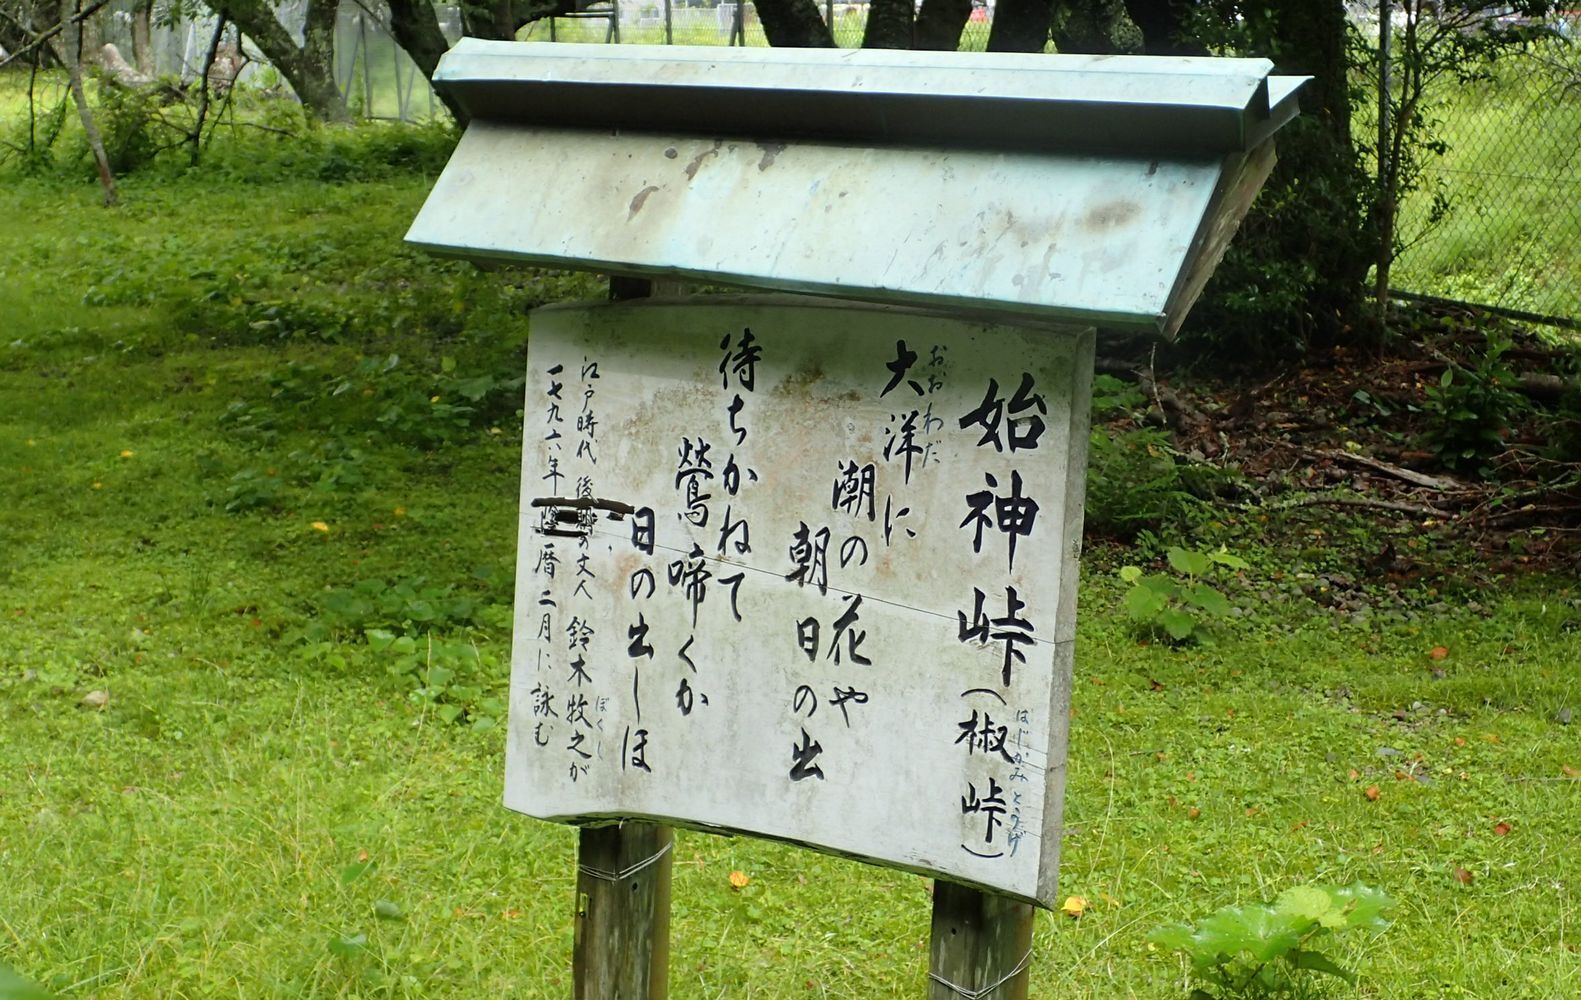 始神峠(椒峠)
はじかみとうげ
おおわだ
大洋に
潮の花や
朝日の出
待ちかねて
鶯啼くか
日の出しほ
江戸時代 後期の文人 鈴木牧之が
ぼくし
一七九六年 陰暦二月に詠む